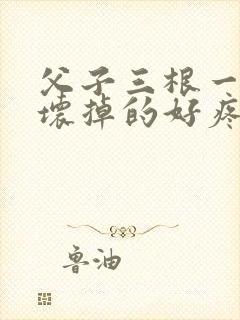 父子三根一
壞掉的好疼
鲁油